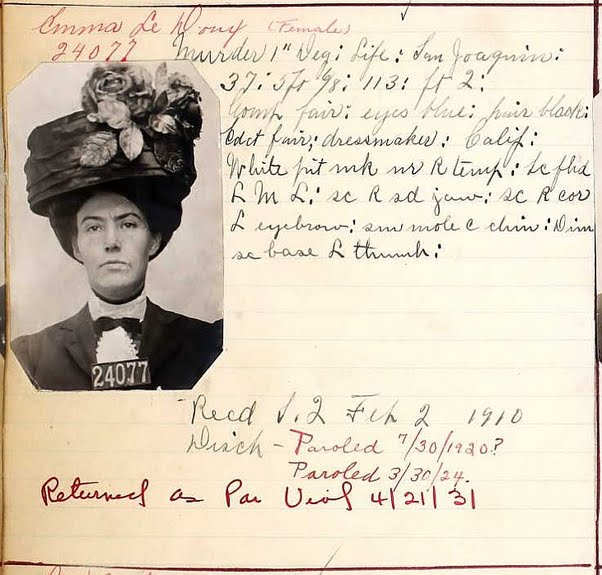 Emma Le Doux (Female)
24077 Murder 1" Deg: Life: San Joaquin:
37: 5 ft 6/8: 113: ft 2:
Comp fair: eyes blue: hair black:
Edct fair; dressmaker: Calif:
White pit mk nr R temp: sc fhd
L M L: sc R sd jaw: sc R cor
L eyebrow: sm mole c chin: Dim
sc base L thumb:
24077
Recd S.Q Feb 2 1910
Disch - Paroled 7/30/1920?
Paroled 3/30/24.
Returned as Par Viol 4/21/31